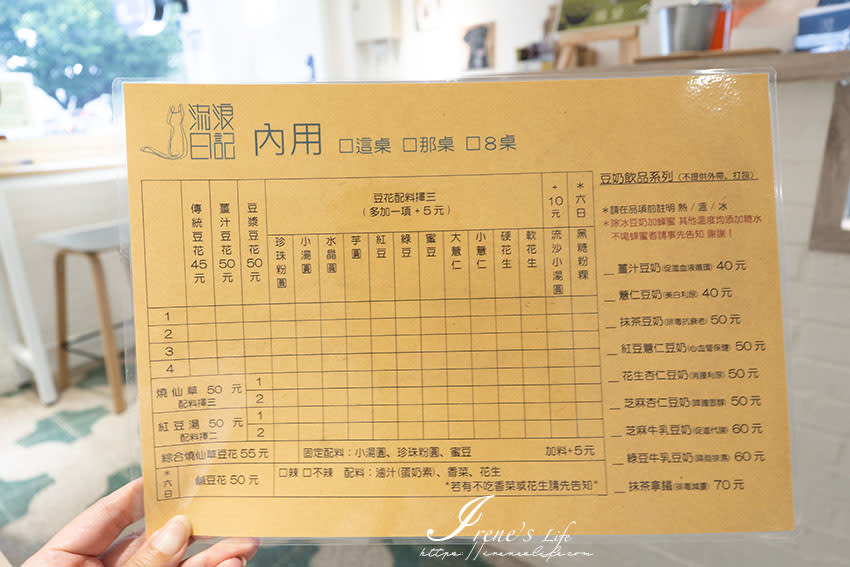 流浪
日記
內用 □這桌 □那桌 □8桌
傳統豆花45元
薑汁豆花50元
豆漿豆花50元
豆花配料擇三
(多加一項+5元)
珍珠粉圓
小湯圓
水晶圓
芋圓
紅豆
綠豆
蜜豆
大薏仁
小薏仁
硬花生
軟花生
+10元
流沙小湯圓
*六日
黑糖粉粿
1
2
3
4
燒仙草 50 元
配料擇三
1
2
紅豆湯 50 元
配料擇二
1
2
綜合燒仙草豆花 55元 固定配料:小湯圓、珍珠粉圓、蜜豆 加料+5元
*六日
鹹豆花 50 元
□辣 □不辣 配料:滷汁(蛋奶素)、香菜、花生
*若有不吃香菜或花生請先告知*
豆奶飲品系列(不提供外帶、打包)
*請在品項前註明 熱/溫/冰
*除冰豆奶加蜂蜜 其他溫度均添加糖水
不喝蜂蜜者請事先告知 謝謝!
_ 薑汁豆奶(促進血液循環) 40 元
_ 薏仁豆奶(美白利尿) 40 元
_ 抹茶豆奶(排毒抗衰老) 50 元
_ 紅豆薏仁豆奶(心血管保健) 50 元
_ 花生杏仁豆奶(消腫利尿) 50 元
_ 芝麻杏仁豆奶 50 元
_ 芝麻牛乳豆奶(促進代謝) 60 元
_ 綠豆牛乳豆奶 60 元
_ 抹茶拿鐵 70 元
Irene's Life
https://ireneslife.com